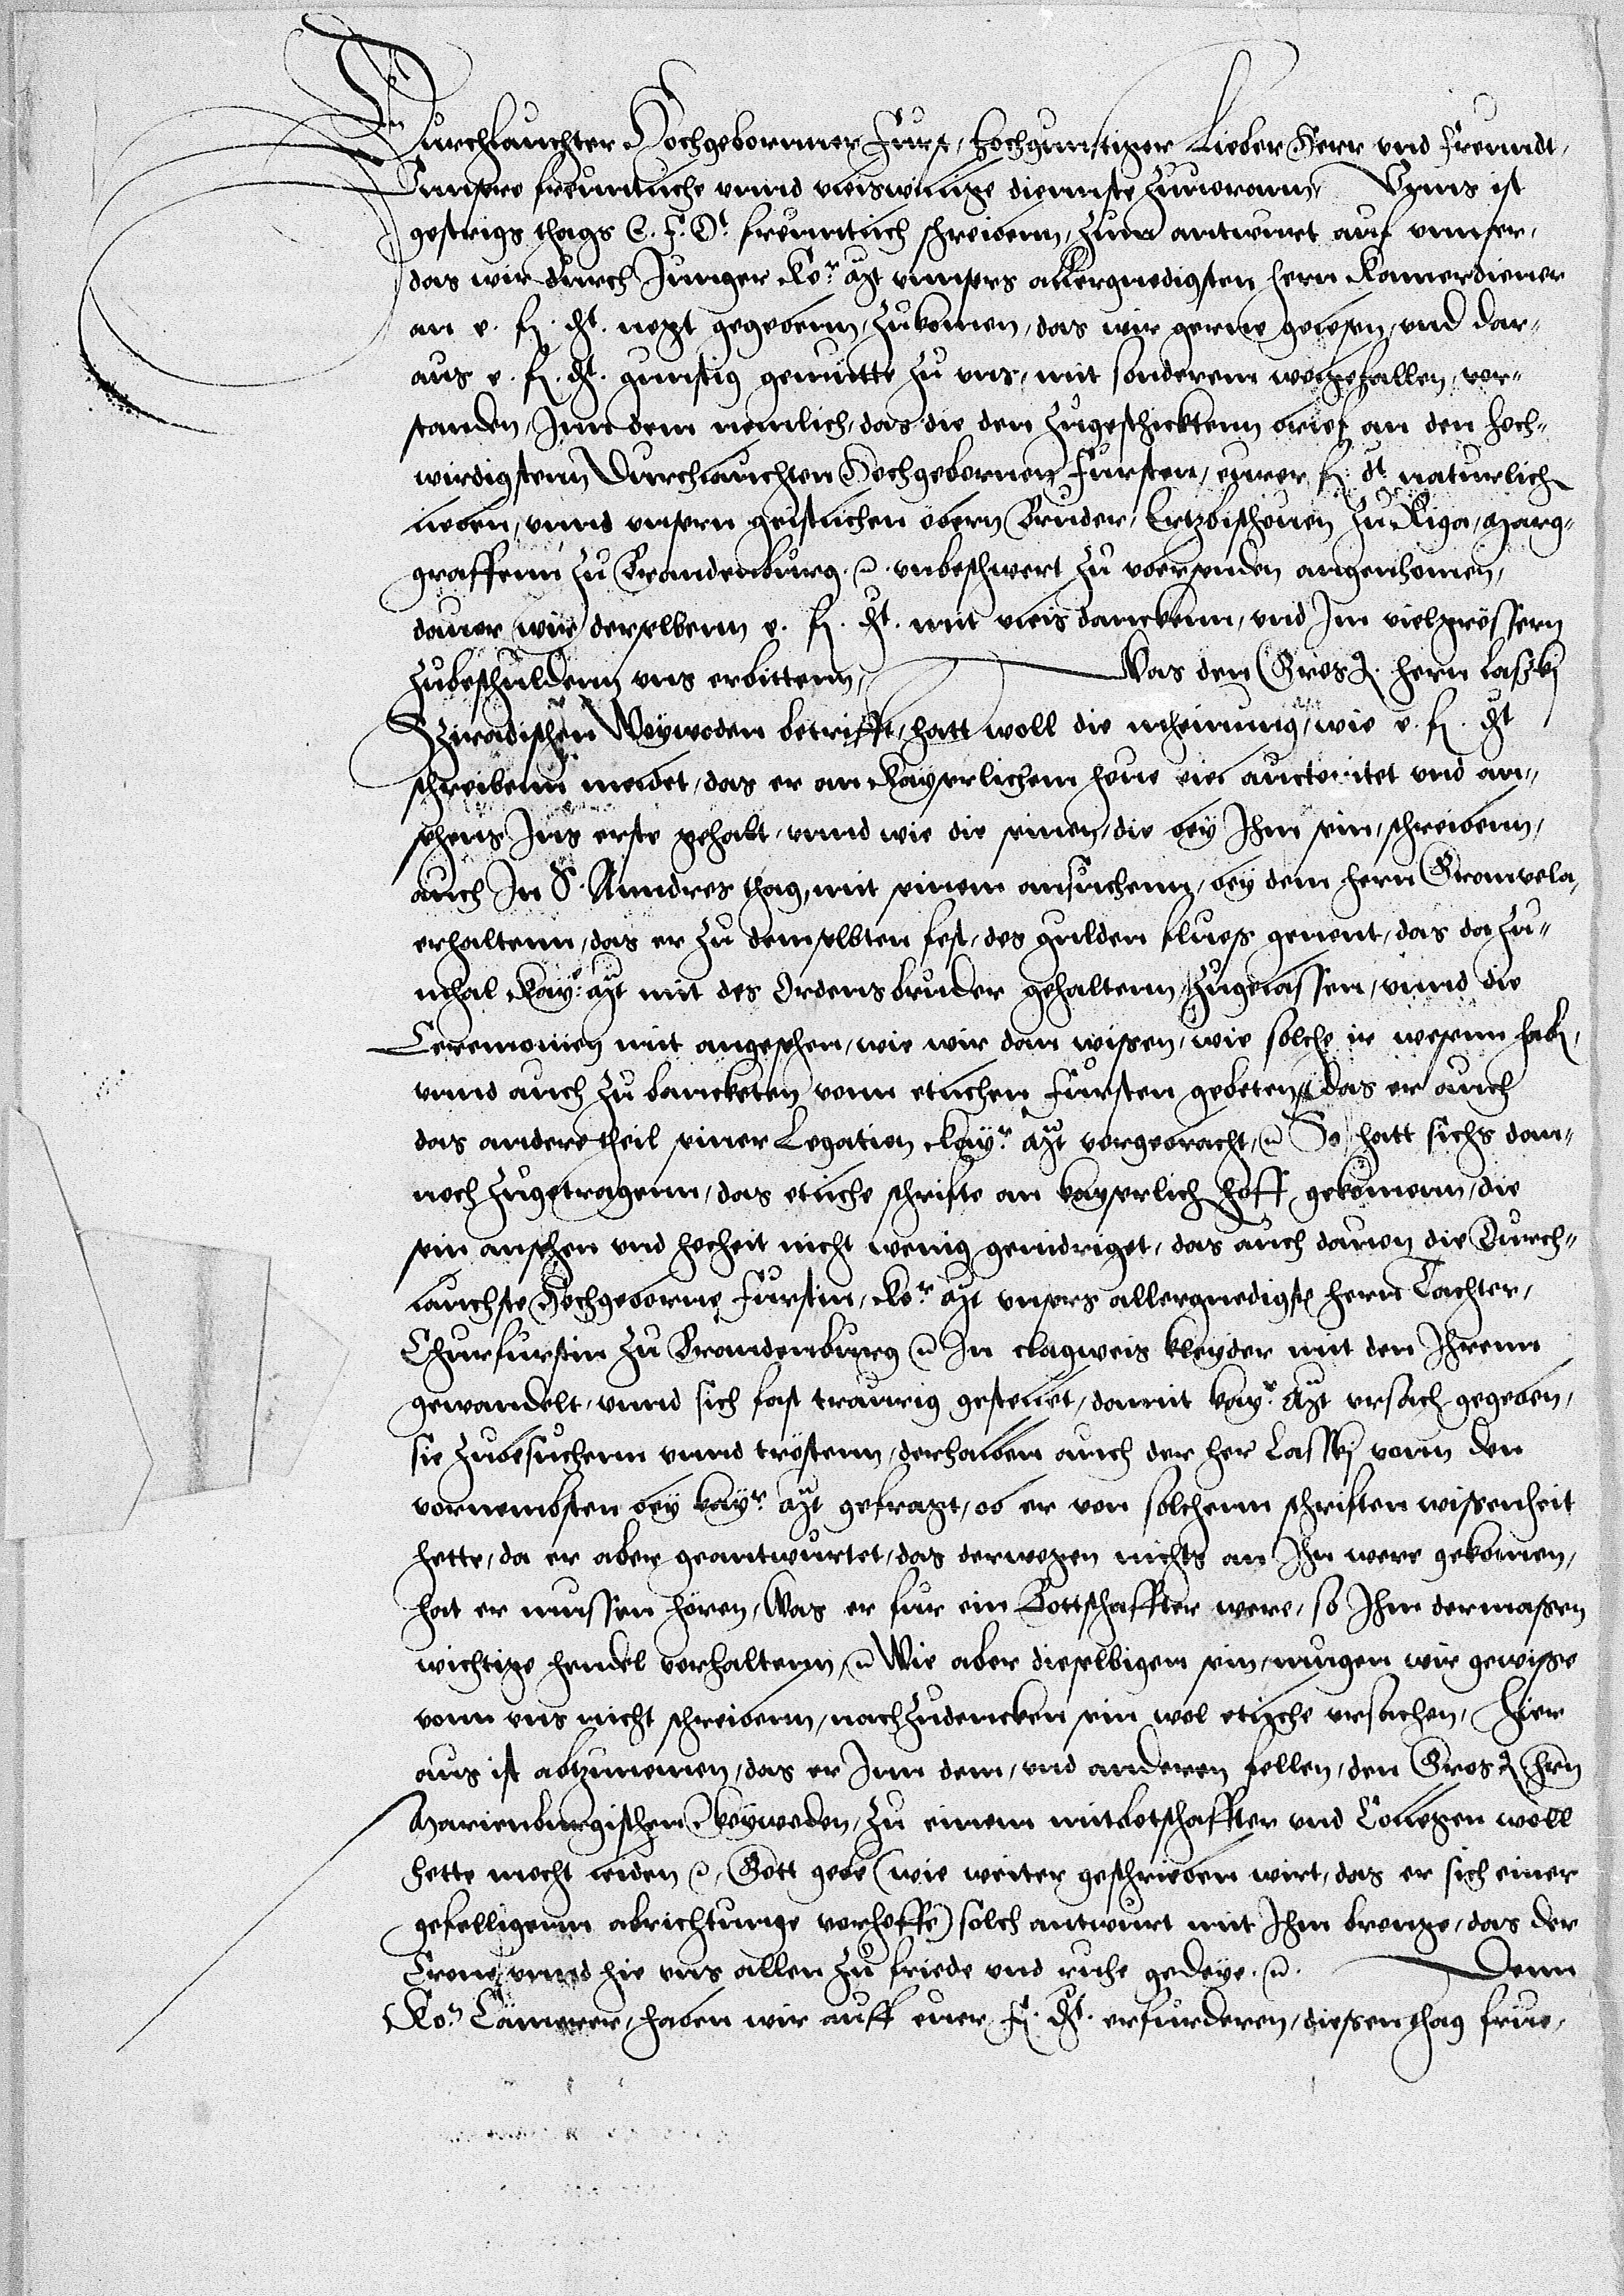 Durchlauchter Hochgeborner Furst, hochgunstiger Lieber Herr und freundt,
Unnsere freuntliche unnd vleiswillige diennste zuuorann, Unns ist
gestrigs thags E. F. Dt. freuntlich schreibenn, zum antwurt auf unnser,
das wir durch Junger Kor. Mt unnsers allergnedigsten hern Kamerdiener
an e. f. dt. negt gegebenn, zukomen, das wir gerne gelesen, und dar,,
aus e. f. dt. gunstig gemutte zu uns, mit sonderem wolgefallen, ver,,
standen, Inn dem nemlich, das die den zugeschicktenn brief an den hoch,,
wirdigstenn Durchlauchten Hochgebornen Fursten, eurer f. dt. naturlich
lieben, unnd unsern geistlichen obern Bruder, Ertzbischouen zu Riga, Marg,,
graffenn zu Brandenburg. etc. unbeschwert zu ubersenden angenhomen,
dauor wir derselbenn e. f. dt. mit vleis danckenn, und Im vielgrössern
zubeschuldenn uns erbittenn, Was den Gros. hern Lasski
Sziradischen Weywoden betrifft, hatt woll die meinung, wie e. f. dt
schreibenn meldet, das er an Kayserlichem houe viel auctoritet und an,,
sehens Ins erste gehabt, unnd wie die seinen, die bey Ihm sein, schreibenn,
auch In S. Anndres thag, mit seinem ansuchenn, bey dem hern Granvela,
erhaltenn, das er zu demselbten fest, des gulden fluess genent, das da zu,,
mhal Kayr. Mt mit des Ordensbruder gehaltenn, zugelassen, unnd die
Ceremonien mit angesehen, wie wir dan wissen, wie solche ir wesenn hab,
unnd auch zu bancketen vonn etlichen Fursten gebeten, das er auch
das andere theil seiner Legation Kayr. Mt vorgebracht, etc So hatt sichs dan,,
noch zugetragenn, das etliche schrifte an kayserlich hoff gekomenn, die
sein ansehen und hocheit nicht wenig genidriget, das auch dauon die Durch,,
lauchste Hochgeborne Furstin, Kor. Mt unsers allergnedigsten hern Tochter,
Churfurstin zu Brandenburg etc In clagweis kleyder mit den Ihrenn
gewandelt, unnd sich fast traurig gestellet, damit kayr. Mt ursach gegeben,
sie zubesuchenn unnd tröstenn, derhalben auch der her Lasski vonn den
vornembsten bey kayr. Mt gefragt, ob er von solchenn schriften wissenheit
hette, da er aber geantwurtet, das derwegen nichts an Ihn were gekomen,
hat er mussen hören, Was er fur ein Bottschaffter were, so Ihm dermassen
wichtige hendel verhaltenn, etc Wie aber dieselbigen sein, mugen wir gewisse
vonn uns nicht schreibenn, nachzudencken sein wol etliche ursachen, Hier
aus ist abzunemen, das er Inn dem, und anderen fellen, den Gros. hern
Marienburgischen Weyweden, zu einem mitbotschaffter und Collegen woll
hette mocht leiden etc, Gott gebe (wie weiter geschrieben wirt, das er sich einer
gefelligenn abrichtunge verhoffe) solch antwurt mit Ihm brenge, das der
Crone, unnd hie uns allen zu friede und ruhe gedeye. etc. Denn
Kon. Cämerer, haben wir auff euer f. dt. erfurderen, diessen thag frue,